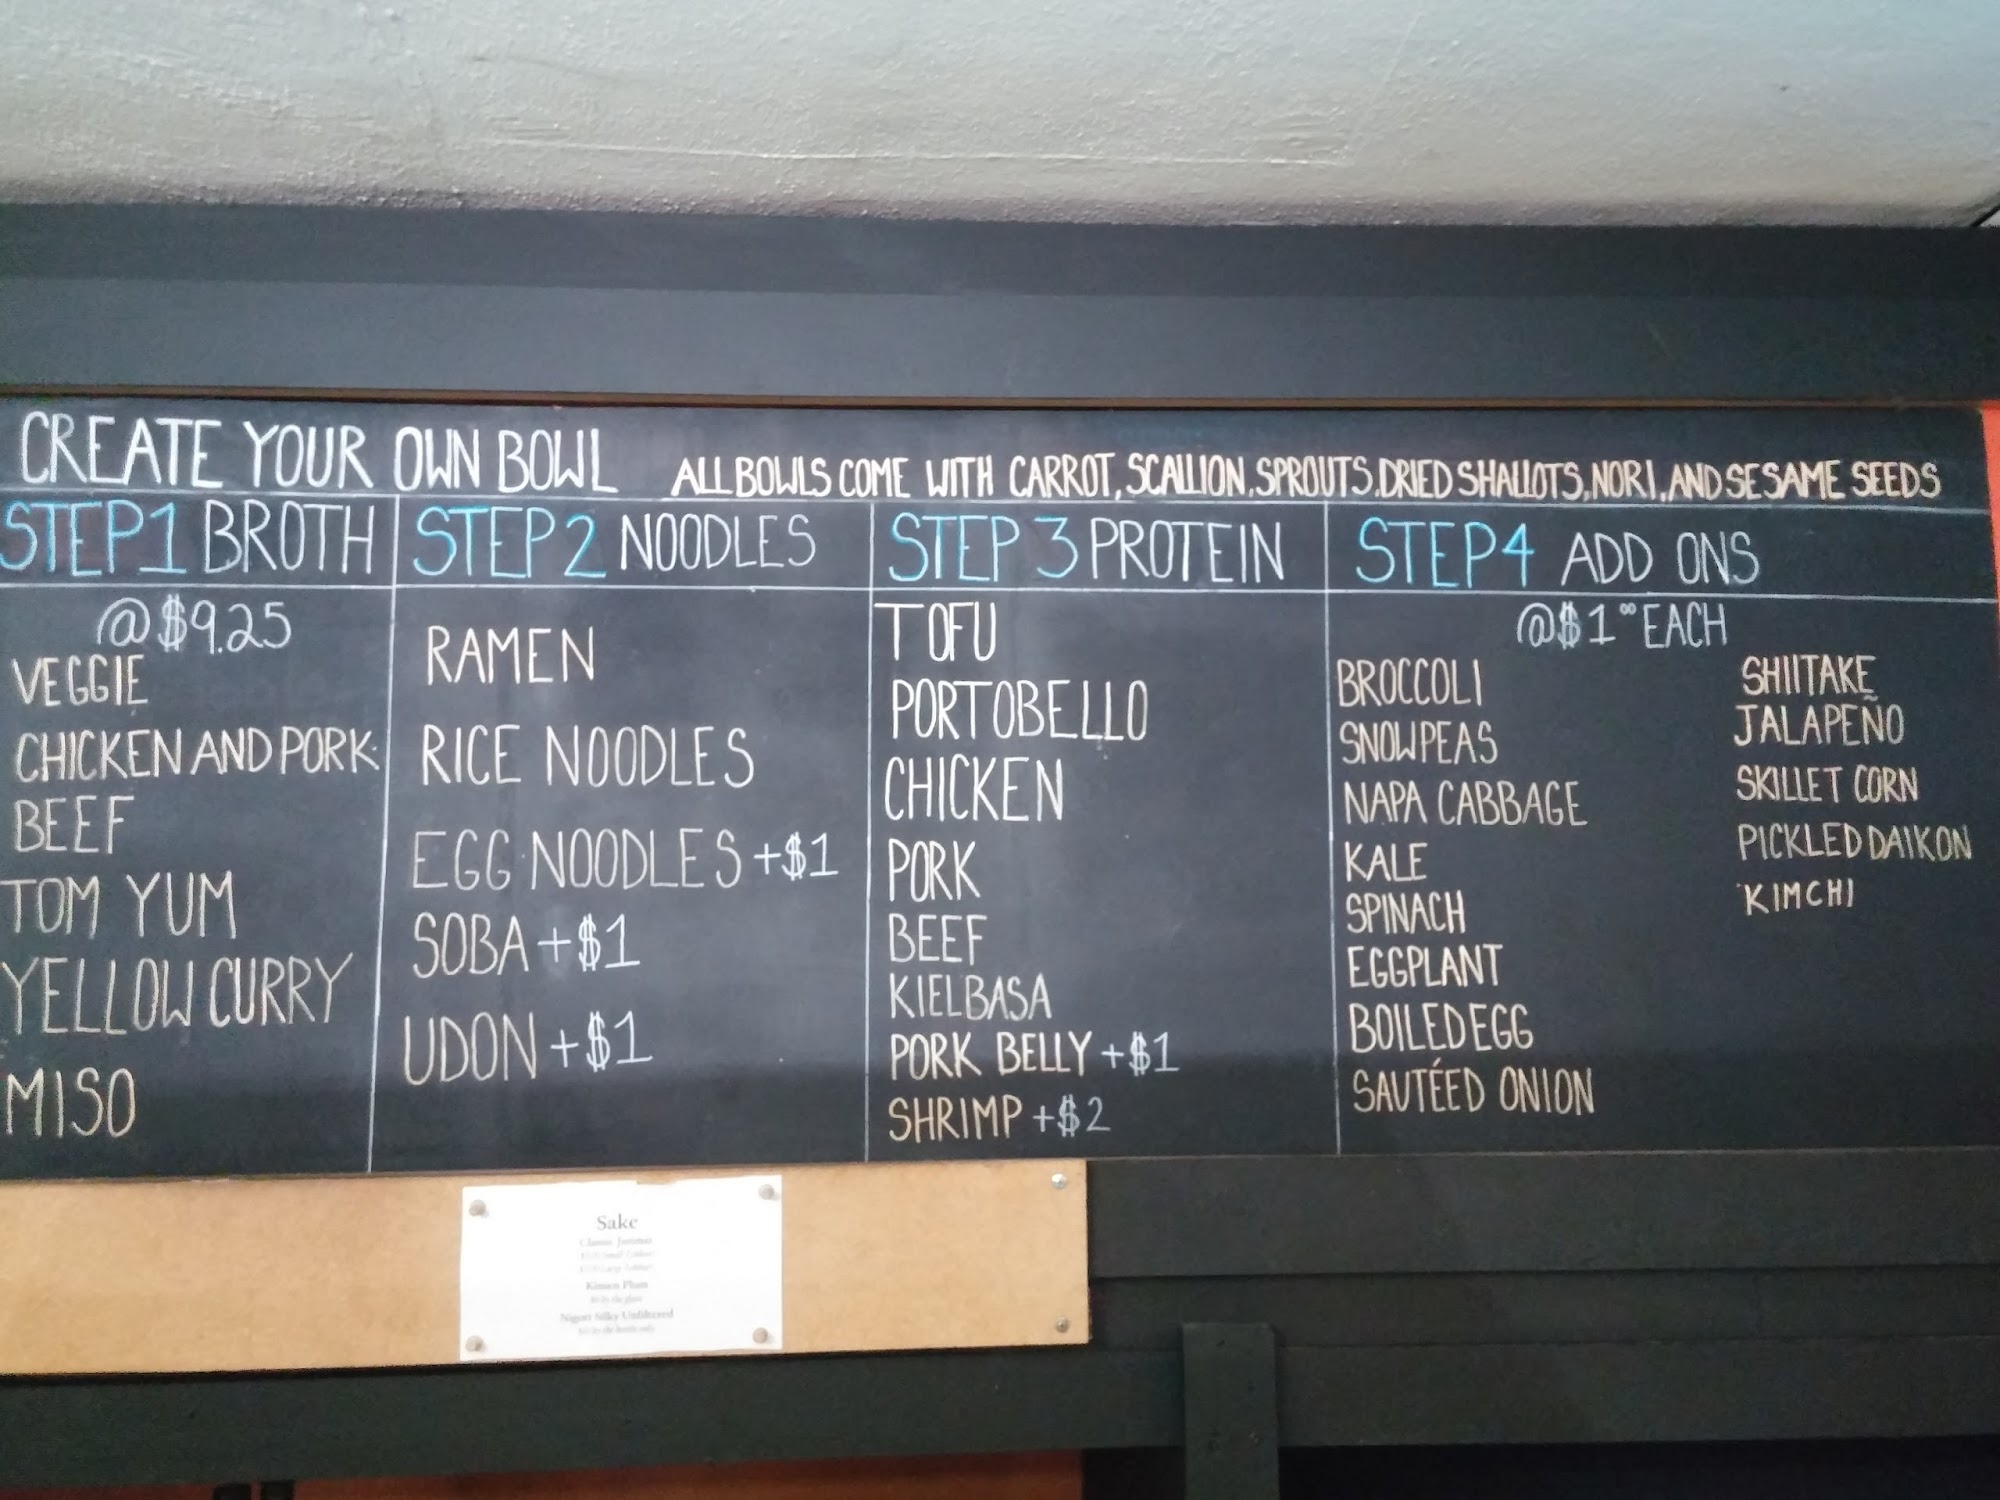 CREATE YOUR OWN BOWL
ALL BOWLS COME WITH CARROT, SCALLION, SPROUTS, DRIED SHALLOTS, NORI, AND SESAME SEEDS
STEP 1 BROTH
@ $9.25
VEGGIE
CHICKEN AND PORK
BEEF
TOM YUM
YELLOW CURRY
MISO
STEP 2 NOODLES
RAMEN
RICE NOODLES
EGG NOODLES +$1
SOBA +$1
UDON +$1
STEP 3 PROTEIN
TOFU
PORTOBELLO
CHICKEN
PORK
BEEF
KIELBASA
PORK BELLY +$1
SHRIMP +$2
STEP 4 ADD ONS
@ $1⁰⁰ EACH
BROCCOLI
SNOWPEAS
NAPA CABBAGE
KALE
SPINACH
EGGPLANT
BOILED EGG
SAUTÉED ONION
SHIITAKE
JALAPEÑO
SKILLET CORN
PICKLED DAIKON
KIMCHI
Sake
Classic
Plum
by the glass
Nigori Silky Unfiltered
by the bottle only